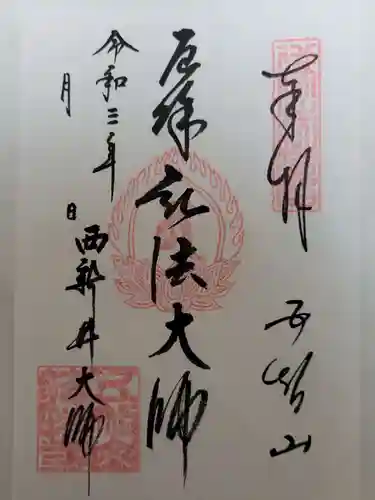 奉拝　五智山
厄除弘法大師
令和三年　月　日
西新井大師